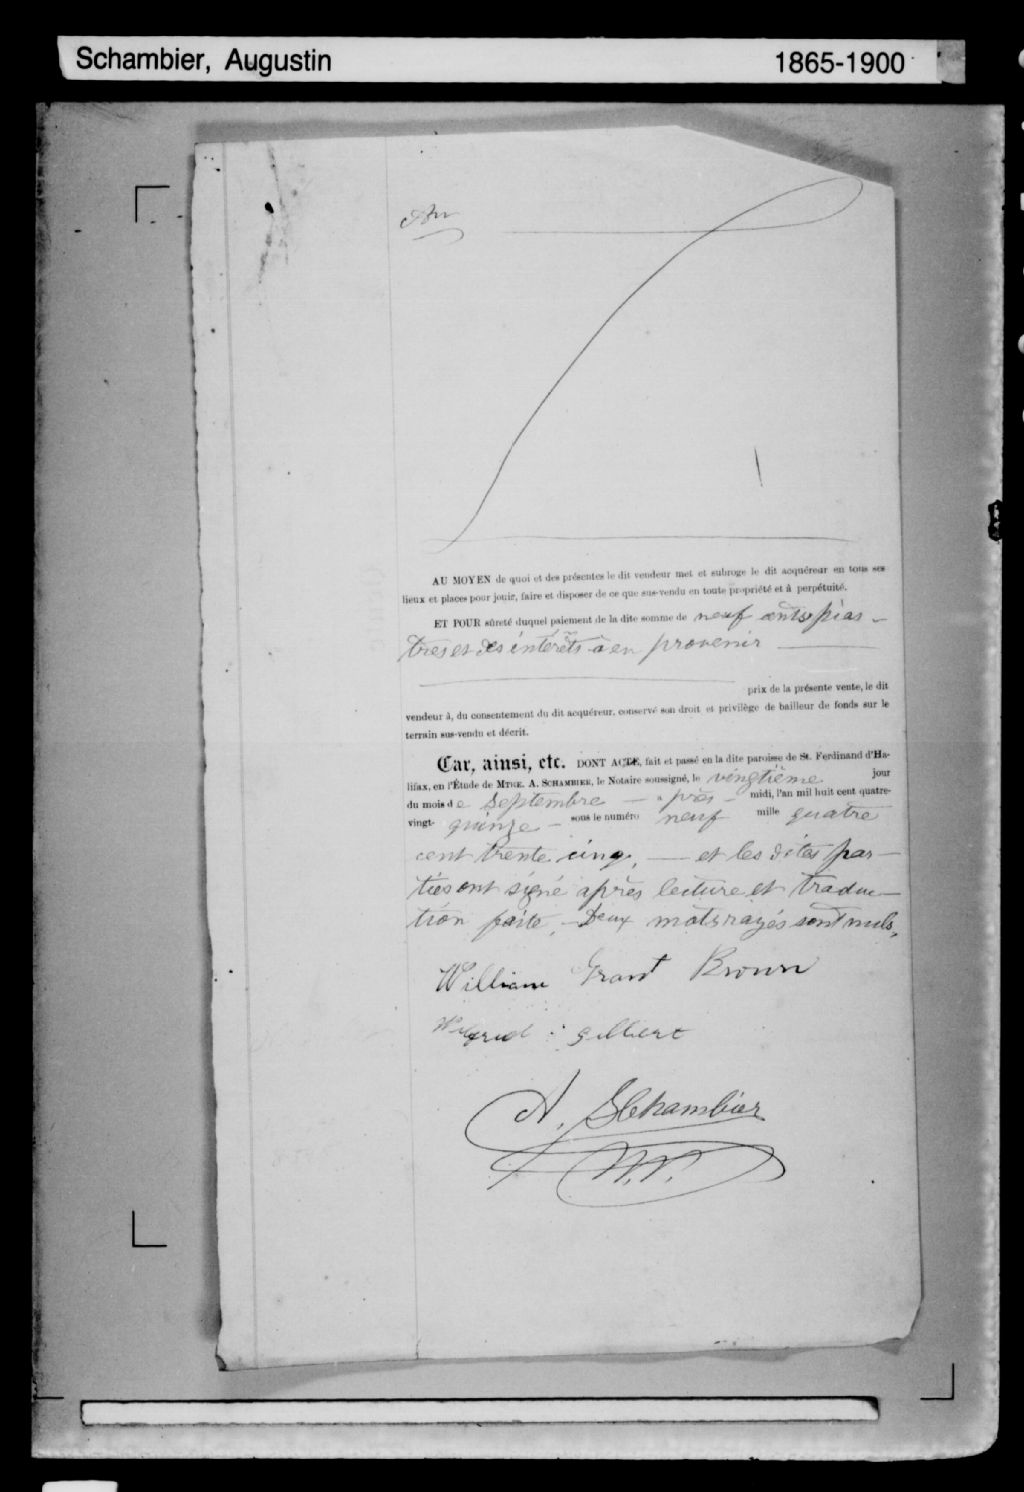 Schambier, Augustin 1865-1900
AU MOYEN de quoi et des présentes le dit vendeur met et subroge le dit acquéreur en tous ses
lieux et places pour jouir, faire et disposer de ce que sus-vendu en toute propriété et à perpétuité.
ET POUR sûreté duquel paiement de la dite somme de neuf cents pias-
tres et des intérêts à en provenir
prix de la présente vente, le dit
vendeur à, du consentement du dit acquéreur, conservé son droit et privilège de bailleur de fonds sur le
terrain sus-vendu et décrit.
Car, ainsi, etc. DONT ACTE, fait et passé en la dite paroisse de St. Ferdinand d'Ha-
lifax, en l'Étude de MTRE. A. SCHAMBIER, le Notaire soussigné, le vingtième jour
du mois de Septembre - après - midi, l'an mil huit cent quatre-
vingt- quinze - sous le numéro neuf mille quatre
cent trente cinq, — et les dites par-
ties ont signé après lecture et traduc-
tion faite, - Deux mots rayés sont nuls,
William Grant Brown
Wilfrid Gilbert
A. Schambier
N.P.